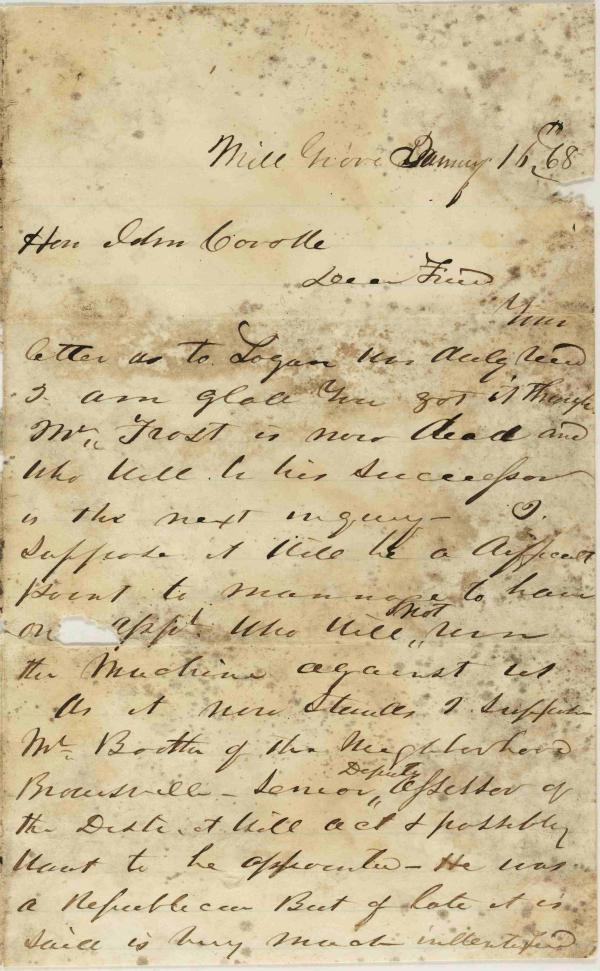 Mill Grove January 16 68
Hon John Covode
Dear Friend
Your
letter as to Logan was duly recd
I am glad you got it through
Mr. Frost is now dead and
who will be his successor
is the next inquiry — I
suppose it will be a difficult
point to mannage to have
on appt. who will not run
the Machine against us
As it now stands I suppose
Mr. Booth of the Neighborhood
Brownsville — Senior Deputy Assessor of
the District will act & possibly
want to be appointed — He was
a Republican But of late it is
said is very much indentified